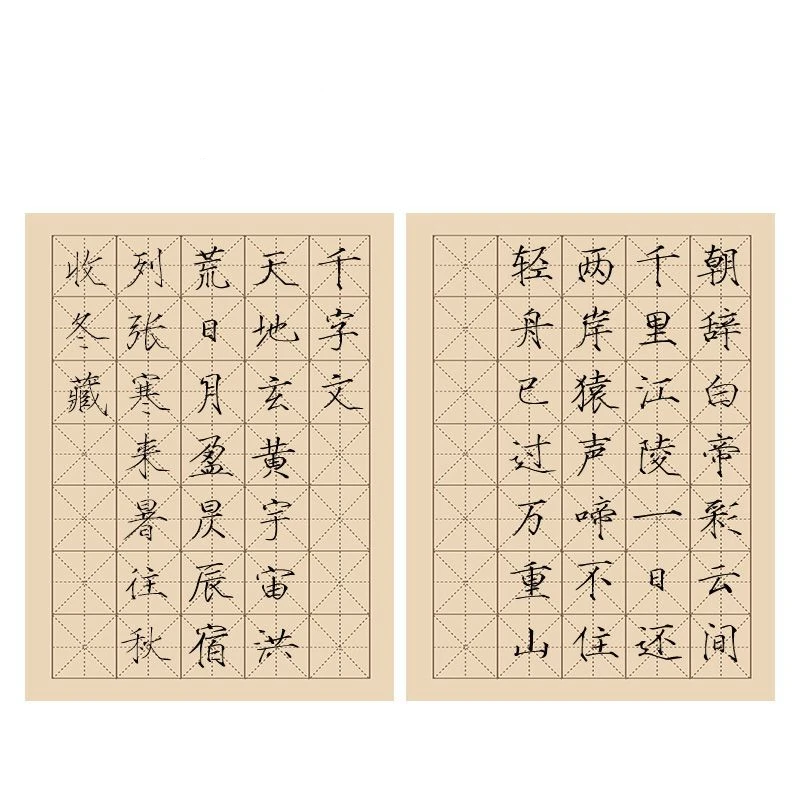 千字文
天地玄黄宇宙洪
荒日月盈昃辰宿
列张寒来暑往秋
收冬藏
朝辞白帝彩云间
千里江陵一日还
两岸猿声啼不住
轻舟已过万重山